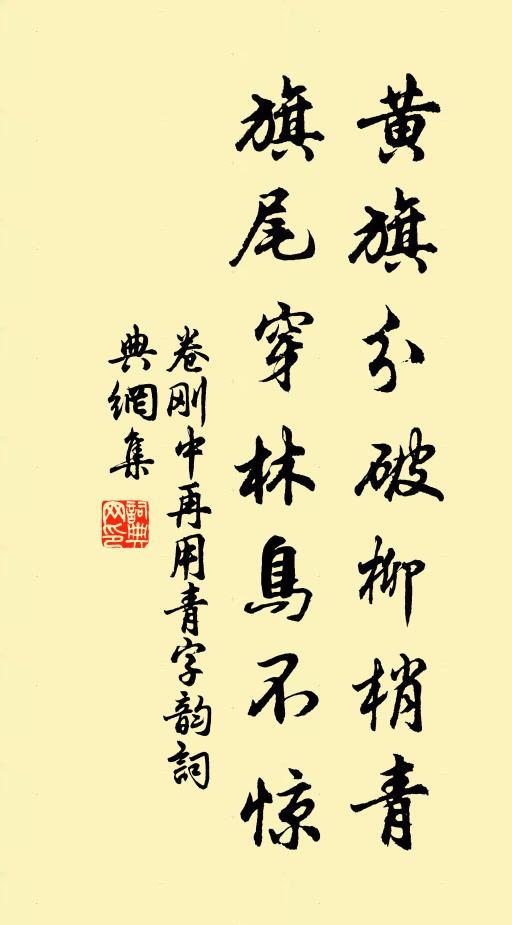 黄旗分破柳梢青
旗尾穿林鸟不惊
卷刚中再用青字韵詞
典網集
詞典网印